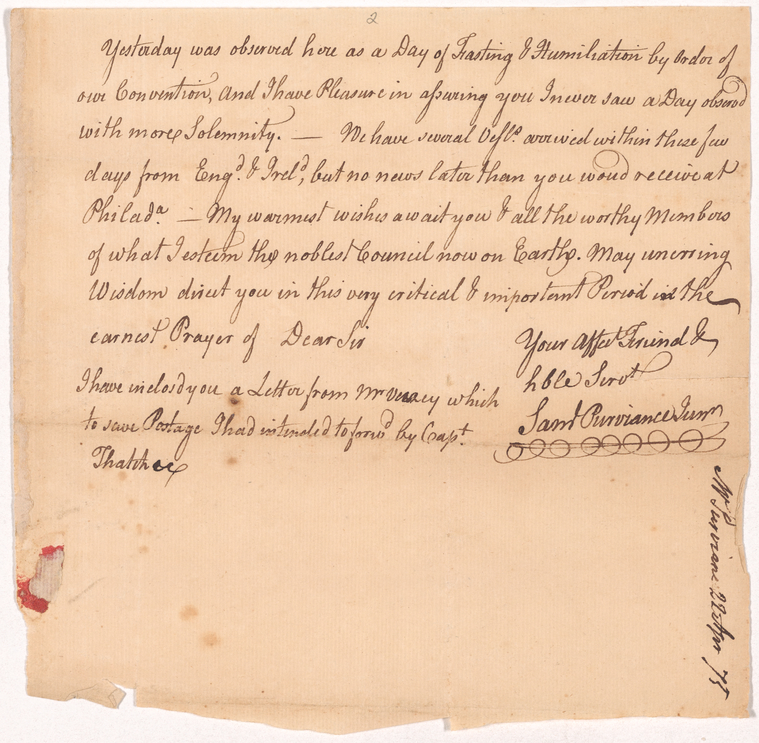 2
Yesterday was observed here as a Day of Fasting & Humiliation by order of
our Convention, and I have Pleasure in assuring you I never saw a Day observd
with more Solemnity. — We have several Vessls. arrived within these few
days from Engd. & Ireld, but no news later than you woud receive at
Philada. — My warmest wishes await you & all the worthy Members
of what I esteem the noblest Council now on Earth. May unerring
Wisdom direct you in this very critical & important Period is the
earnest Prayer of Dear Sir
Your Affect. Friend &
hble Servt
Saml Purviance Junr
I have inclosd you a Letter from Mr which
to save Postage I had intended to forwd by Capt.
Thatcher
Mr Purviance 22 Apr 75